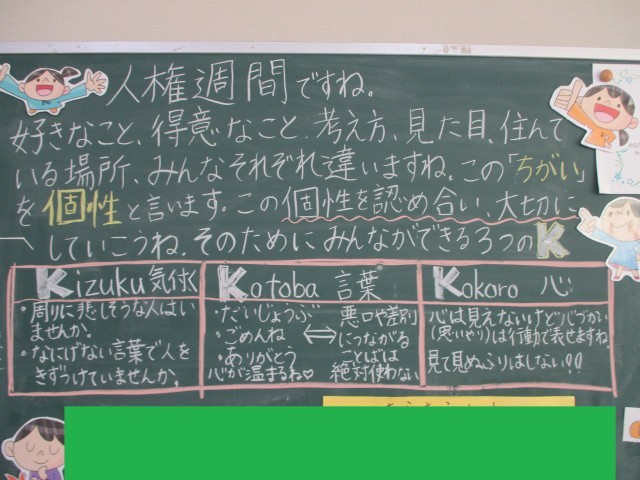 人権週間ですね。
好きなこと、得意なこと、考え方、見た目、住んで
いる場所、みんなそれぞれ違いますね。この「ちがい」
を個性と言います。この個性を認め合い、大切に
していこうね。そのためにみんなができる3つのK
Kizuku 気付く
・周りに悲しそうな人はい
ませんか。
・なにげない言葉で人を
きずつけていませんか。
Kotoba 言葉
・だいじょうぶ
・ごめんね
・ありがとう
心が温まるね♡
⇔
悪口や差別
につながる
ことばは
絶対使わない
Kokoro 心
心は見えないけど心づかい
(思いやり)は行動で表せますね。
見て見ぬふりはしない!!